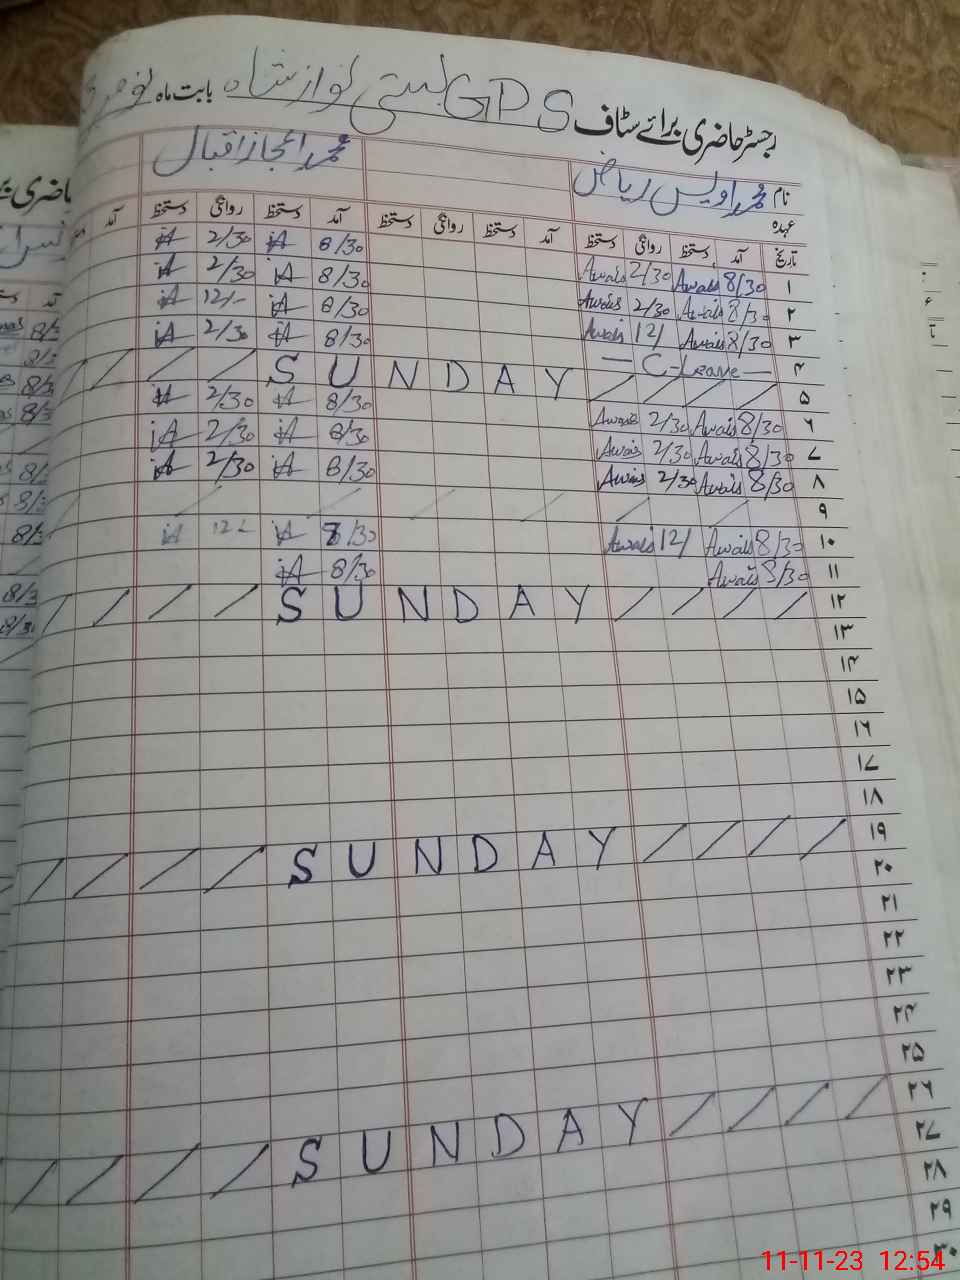 رجسٹر حاضری برائے سٹاف GPS بستی نواز شاہ بابت ماہ نومبر
نام محمد اویس ریاض محمد اعجاز اقبال
عہدہ
تاریخ آمد دستخط روانگی دستخط آمد دستخط روانگی دستخط آمد دستخط روانگی دستخط آمد
۱ 8/30 Awais 2/30 Awais 8/30 iA 2/30 iA
۲ 8/30 Awais 2/30 Awais 8/30 iA 2/30 iA
۳ 8/30 Awais 12/ Awais 8/30 iA 12/- iA
۴ — C-Leave — 8/30 iA 2/30 iA
۵ SUNDAY
۶ 8/30 Awais 2/30 Awais 8/30 iA 2/30 iA
۷ 8/30 Awais 2/30 Awais 8/30 iA 2/30 iA
۸ 8/30 Awais 2/30 Awais 8/30 iA 2/30 iA
۹
۱۰ 8/30 Awais 12/ Awais 8/30 iA 12/ iA
۱۱ 8/30 Awais 8/30 iA
۱۲ SUNDAY
۱۳
۱۴
۱۵
۱۶
۱۷
۱۸
۱۹ SUNDAY
۲۰
۲۱
۲۲
۲۳
۲۴
۲۵
۲۶ SUNDAY
۲۷
۲۸
۲۹
۳۰
11-11-23 12:54